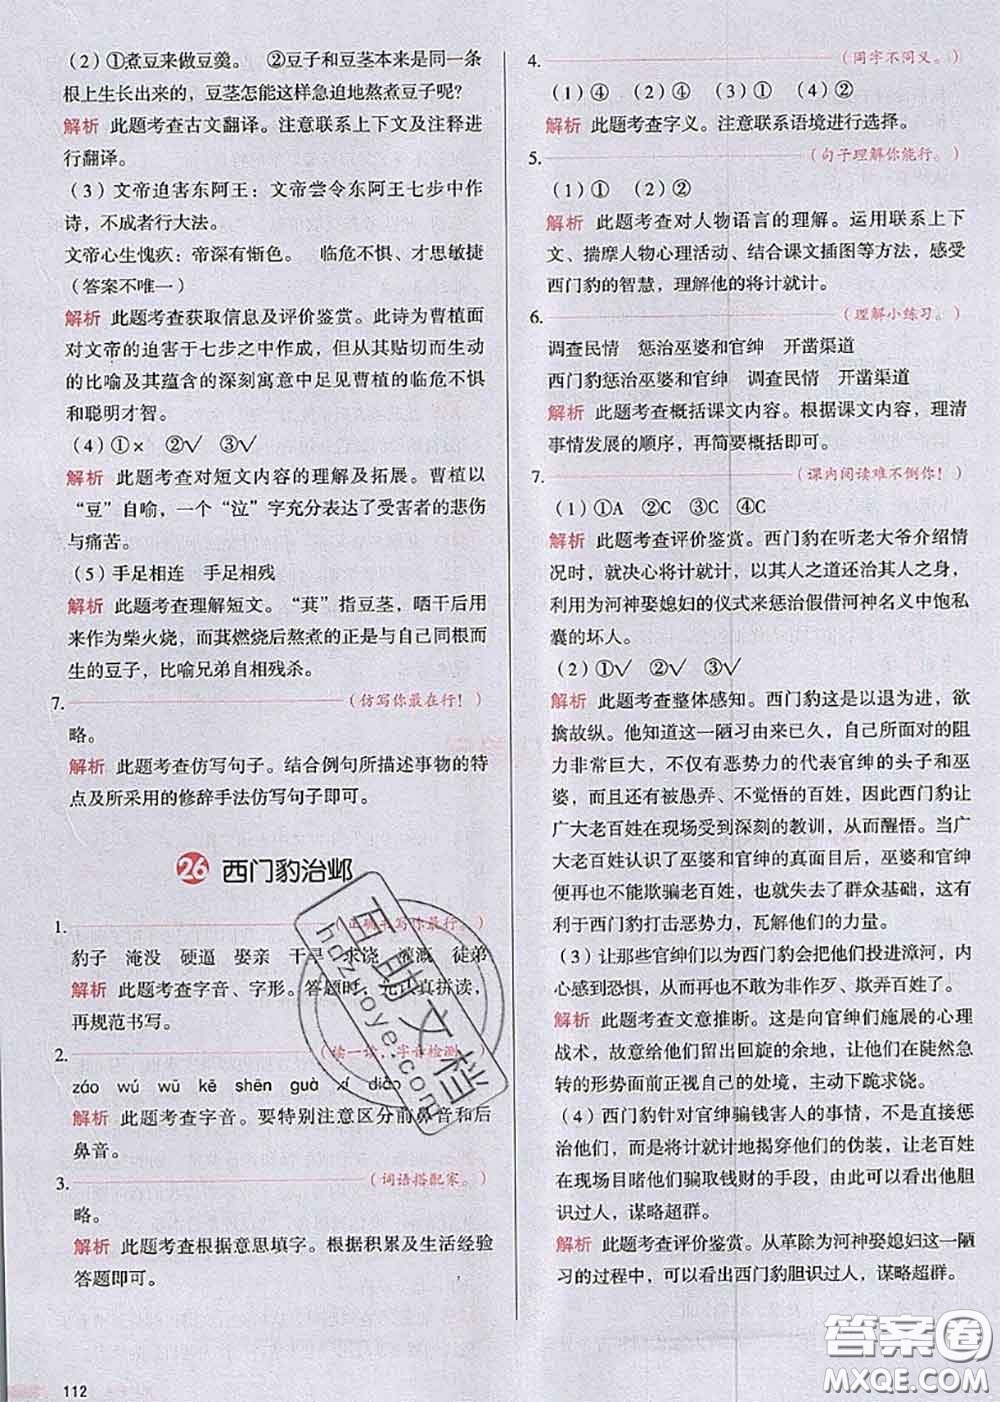 （2）①煮豆来做豆羹。 ②豆子和豆茎本来是同一条
根上生长出来的，豆茎怎能这样急迫地熬煮豆子呢？
解析 此题考查古文翻译。注意联系上下文及注释进
行翻译。
（3）文帝迫害东阿王：文帝尝令东阿王七步中作
诗，不成者行大法。
文帝心生愧疚：帝深有惭色。 临危不惧、才思敏捷
（答案不唯一）
解析 此题考查获取信息及评价鉴赏。此诗为曹植面
对文帝的迫害于七步之中作成，但从其贴切而生动
的比喻及其蕴含的深刻寓意中足见曹植的临危不惧
和聪明才智。
（4）①× ②√ ③√
解析 此题考查对短文内容的理解及拓展。曹植以
“豆”自喻，一个“泣”字充分表达了受害者的悲伤
与痛苦。
（5）手足相连 手足相残
解析 此题考查理解短文。“萁”指豆茎，晒干后用
来作为柴火烧，而萁燃烧后熬煮的正是与自己同根而
生的豆子，比喻兄弟自相残杀。
7. （仿写你最在行！）
略。
解析 此题考查仿写句子。结合例句所描述事物的特
点及所采用的修辞手法仿写句子即可。
26 西门豹治邺
1. （正确书写你最行。）
豹子 淹没 硬逼 娶亲 干旱 求饶 灌溉 徒弟
解析 此题考查字音、字形。答题时，先认真拼读，
再规范书写。
2. （读一读，字音检测。）
záo wú wū kē shēn guà xí diào
解析 此题考查字音。要特别注意区分前鼻音和后
鼻音。
3. （词语搭配家。）
略。
解析 此题考查根据意思填字。根据积累及生活经验
答题即可。
112
4. （同字不同义。）
（1）④ （2）① （3）③ （4）②
解析 此题考查字义。注意联系语境进行选择。
5. （句子理解你能行。）
（1）① （2）②
解析 此题考查对人物语言的理解。运用联系上下
文、揣摩人物心理活动、结合课文插图等方法，感受
西门豹的智慧，理解他的将计就计。
6. （理解小练习。）
调查民情 惩治巫婆和官绅 开凿渠道
西门豹惩治巫婆和官绅 调查民情 开凿渠道
解析 此题考查概括课文内容。根据课文内容，理清
事情发展的顺序，再简要概括即可。
7. （课内阅读难不倒你！）
（1）①A ②C ③C ④C
解析 此题考查评价鉴赏。西门豹在听老大爷介绍情
况时，就决心将计就计，以其人之道还治其人之身，
利用为河神娶媳妇的仪式来惩治假借河神名义中饱私
囊的坏人。
（2）①√ ②√ ③√
解析 此题考查整体感知。西门豹这是以退为进，欲
擒故纵。他知道这一陋习由来已久，改变它遇到的阻
力非常巨大，不仅有恶势力的代表官绅的头子和巫
婆，而且还有被愚弄、不觉悟的百姓，因此西门豹让
广大老百姓在现场受到深刻的教训，从而醒悟。当广
大老百姓认识了巫婆和官绅的真面目，巫婆和官绅再
也不能欺骗老百姓，也就失去了群众基础，这一做法有
利于西门豹打击恶势力，瓦解他们的力量。
（3）让那些官绅以为西门豹会把他们投进漳河，内
心感到恐惧，从而再也不敢为非作歹、欺弄百姓。
解析 此题考查文意推断。这是向官绅们施展的心理
战术，故意给他们留出回旋的余地，让他们在陡然急
转的形势面前正视自己的处境，主动下跪求饶。
（4）西门豹针对官绅骗钱害人的事情，不是直接惩
治他们，而是将计就计地揭穿他们的伪装，让老百姓
现场目睹他们骗取钱财的手段，由此可以看出他胆
识过人，谋略超群。
解析 此题考查评价鉴赏。从革除为河神娶媳妇这一陋
习的过程中，可以看出西门豹胆识过人，谋略超群。
百助文档
hdzuoye.com
答案圈
MXQE.COM